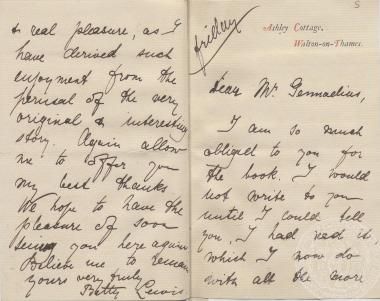 S
Friday
Ashley Cottage,
Walton-on-Thames.
Dear Mr. Gennadius,
I am so much
obliged to you for
the book. I would
not write to you
until I could tell
you, I had read it,
which I now do
with all the more
& real pleasure, as I
have derived such
enjoyment from the
perusal of the very
original & interesting
story. Again allow
me to offer you
my best thanks
We hope to have the
pleasure of soon
seeing you here again
Believe me to remain
yours very truly
Betty Lewis